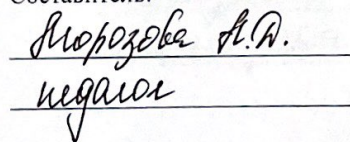 Составитель:
Морозова Н.Д.
педагог